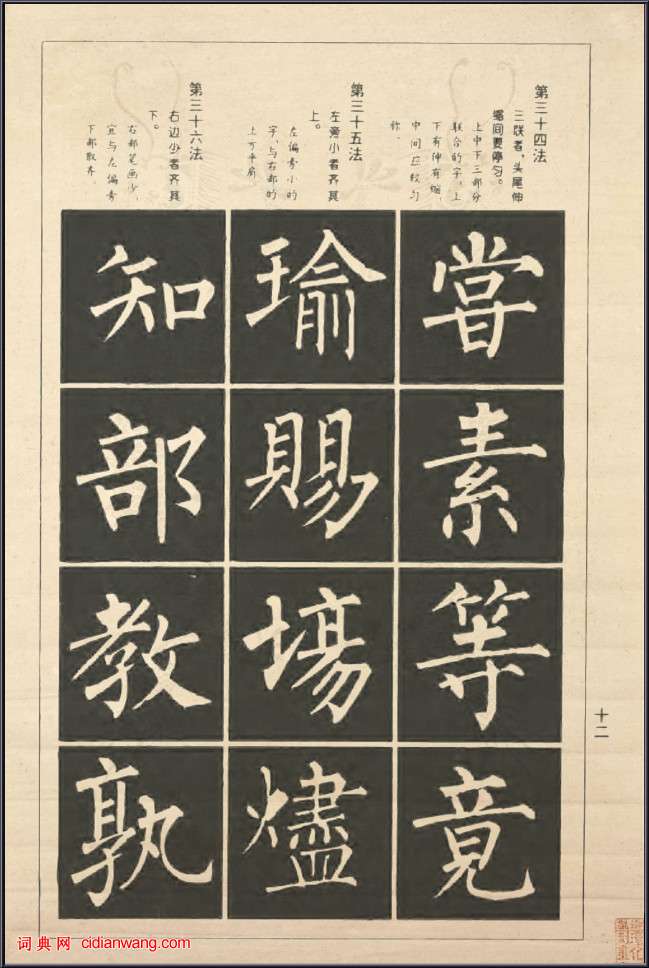 第三十四法
三联者，头尾伸
缩间要停匀。
上中下三部分
联合的字，上
下有伸有缩，
中间应较匀
称。
嘗
素
等
竟
第三十五法
左旁小者齐其
上。
左偏旁小的
字，与右部的
上方平齐
瑜
賜
場
燼
第三十六法
右边少者齐其
下。
右部笔画少，
宜与左偏旁
下部取齐。
知
部
教
孰
十二
词典网 cidianwang.com